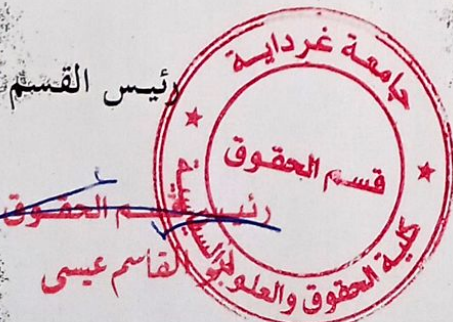 رئيس القسم
جامعة غرداية
قسم الحقوق
كلية الحقوق والعلوم السياسية
رئيس قسم الحقوق
القاسم عيسى